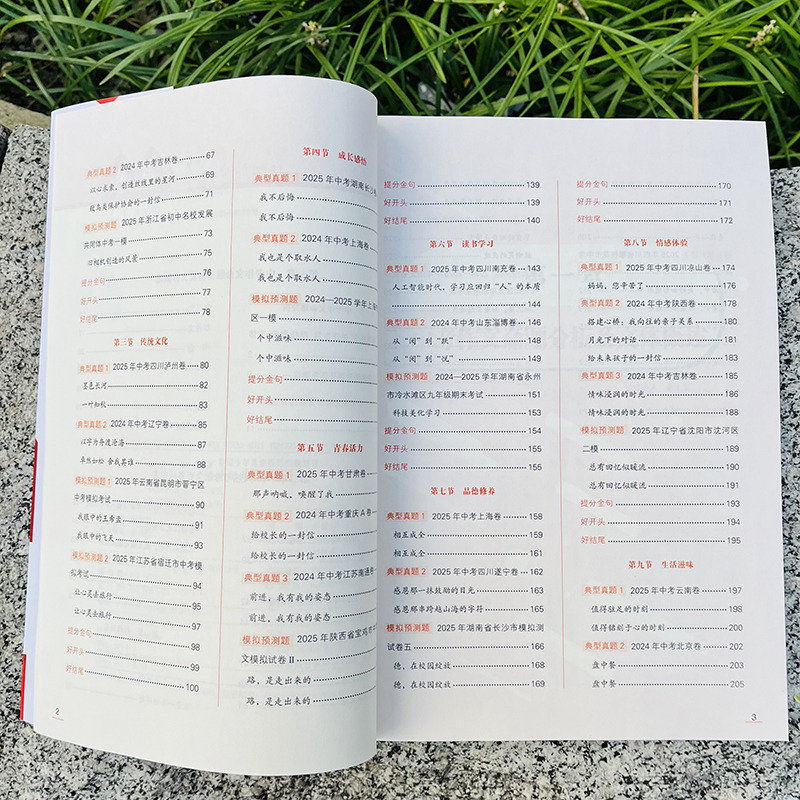 典型真题2 2024年中考吉林卷 67
以心永食，创造丝线里的星河 69
致鸟类保护协会的一封信 71
模拟预测题 2025年浙江省初中名校发展
共同体中考一模 73
旧相机创造的风景 75
提分金句 76
好开头 77
好结尾 78
第三节 传统文化
典型真题1 2025年中考四川泸州卷 80
墨色长河 82
一叶知秋 83
典型真题2 2024年中考辽宁卷 85
以字为舟渡沧海 87
卓然如松 舍我其谁 88
模拟预测题1 2025年云南省昆明市晋宁区
中考模拟考试 90
我眼中的王希孟 91
我眼中的飞天 93
模拟预测题2 2025年江苏省宿迁市中考模
拟考试 94
让心灵去旅行 95
让心灵去旅行 97
提分金句 98
好开头 99
好结尾 100
2
第四节 成长感悟
典型真题1 2025年中考湖南长沙
我不后悔
我不后悔
典型真题2 2024年中考上海卷
我也是个取水人
我也是个取水人
模拟预测题 2024—2025学年上海
区一模
个中滋味
个中滋味
提分金句
好开头
好结尾
第五节 青春活力
典型真题1 2025年中考甘肃卷
那声呐喊，唤醒了我
典型真题2 2024年中考重庆A卷
给校长的一封信
给校长的一封信
典型真题3 2024年中考江苏南通
前进，我有我的姿态
前进，我有我的姿态
模拟预测题 2025年陕西省宝鸡市
文模拟试卷Ⅱ
路，是走出来的
路，是走出来的
提分金句 139
好开头 139
好结尾 139
第六节 读书学习
典型真题1 2025年中考四川南充卷 143
人工智能时代，学习应回归“人”的本质
144
典型真题2 2024年中考山东淄博卷 146
从“阅”到“跃” 148
从“阅”到“悦” 149
模拟预测题 2024—2025学年湖南省永州
市冷水滩区九年级期末考试 151
科技美化学习 153
提分金句 154
好开头 155
好结尾 155
第七节 品德修养
典型真题1 2025年中考上海卷 158
相互成全 159
相互成全 161
典型真题2 2025年中考四川遂宁卷 162
感恩那一抹鼓励的目光 163
感恩那串跨越山海的字符 165
模拟预测题 2025年湖南省长沙市模拟测
试卷五 166
德，在校园绽放 168
德，在校园绽放 169
提分金句 170
好开头 171
好结尾 172
第八节 情感体验
典型真题1 2025年中考四川凉山卷 174
妈妈，您辛苦了 176
典型真题2 2024年中考陕西卷 178
搭建心桥：我向往的亲子关系 180
月光下的对话 181
给未来孩子的一封信 183
典型真题3 2024年中考吉林卷 185
情味浸润的时光 186
情味浸润的时光 188
模拟预测题 2025年辽宁省沈阳市沈河区
二模 189
总有回忆似暖流 190
总有回忆似暖流 191
提分金句 193
好开头 194
好结尾 195
第九节 生活滋味
典型真题1 2025年中考云南卷 197
值得驻足的时刻 198
值得铭刻于心的时刻 200
典型真题2 2024年中考北京卷 202
盘中餐 203
盘中餐 205
3